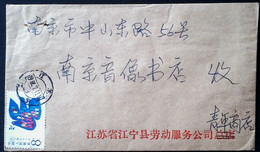 南京市中山东路56号
南京音像书店 收
青年商店
江苏省江宁县劳动服务公司总店
8